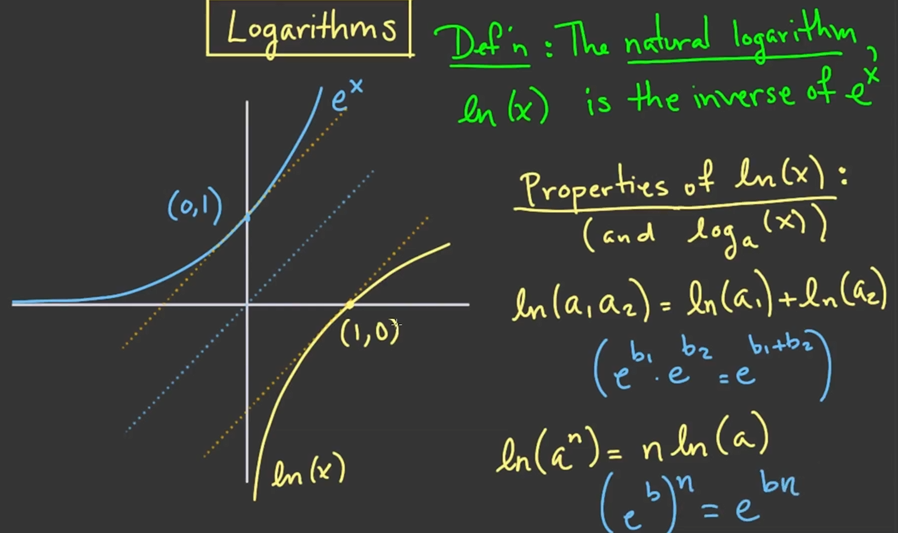 Logarithms
Def'n : The natural logarithm,
ln(x) is the inverse of eˣ
eˣ
(0,1)
(1,0)
ln(x)
Properties of ln(x):
(and logₐ(x))
ln(a₁a₂) = ln(a₁)+ln(a₂)
(e^b₁ · e^b₂ = e^b₁+b₂)
ln(aⁿ) = n ln(a)
(e^b)^n = e^bn